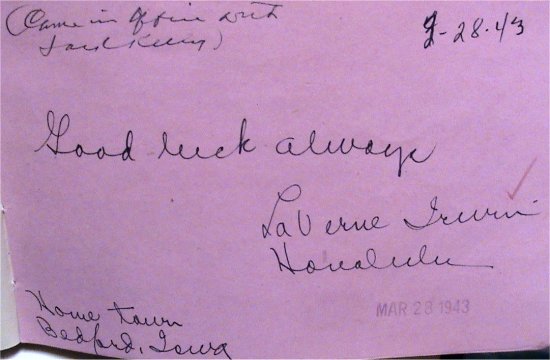 (Came in Office with
3-28-43
Good luck always
LaVerne Irwin
Honolulu
MAR 28 1943
Home town
Bedford, Iowa